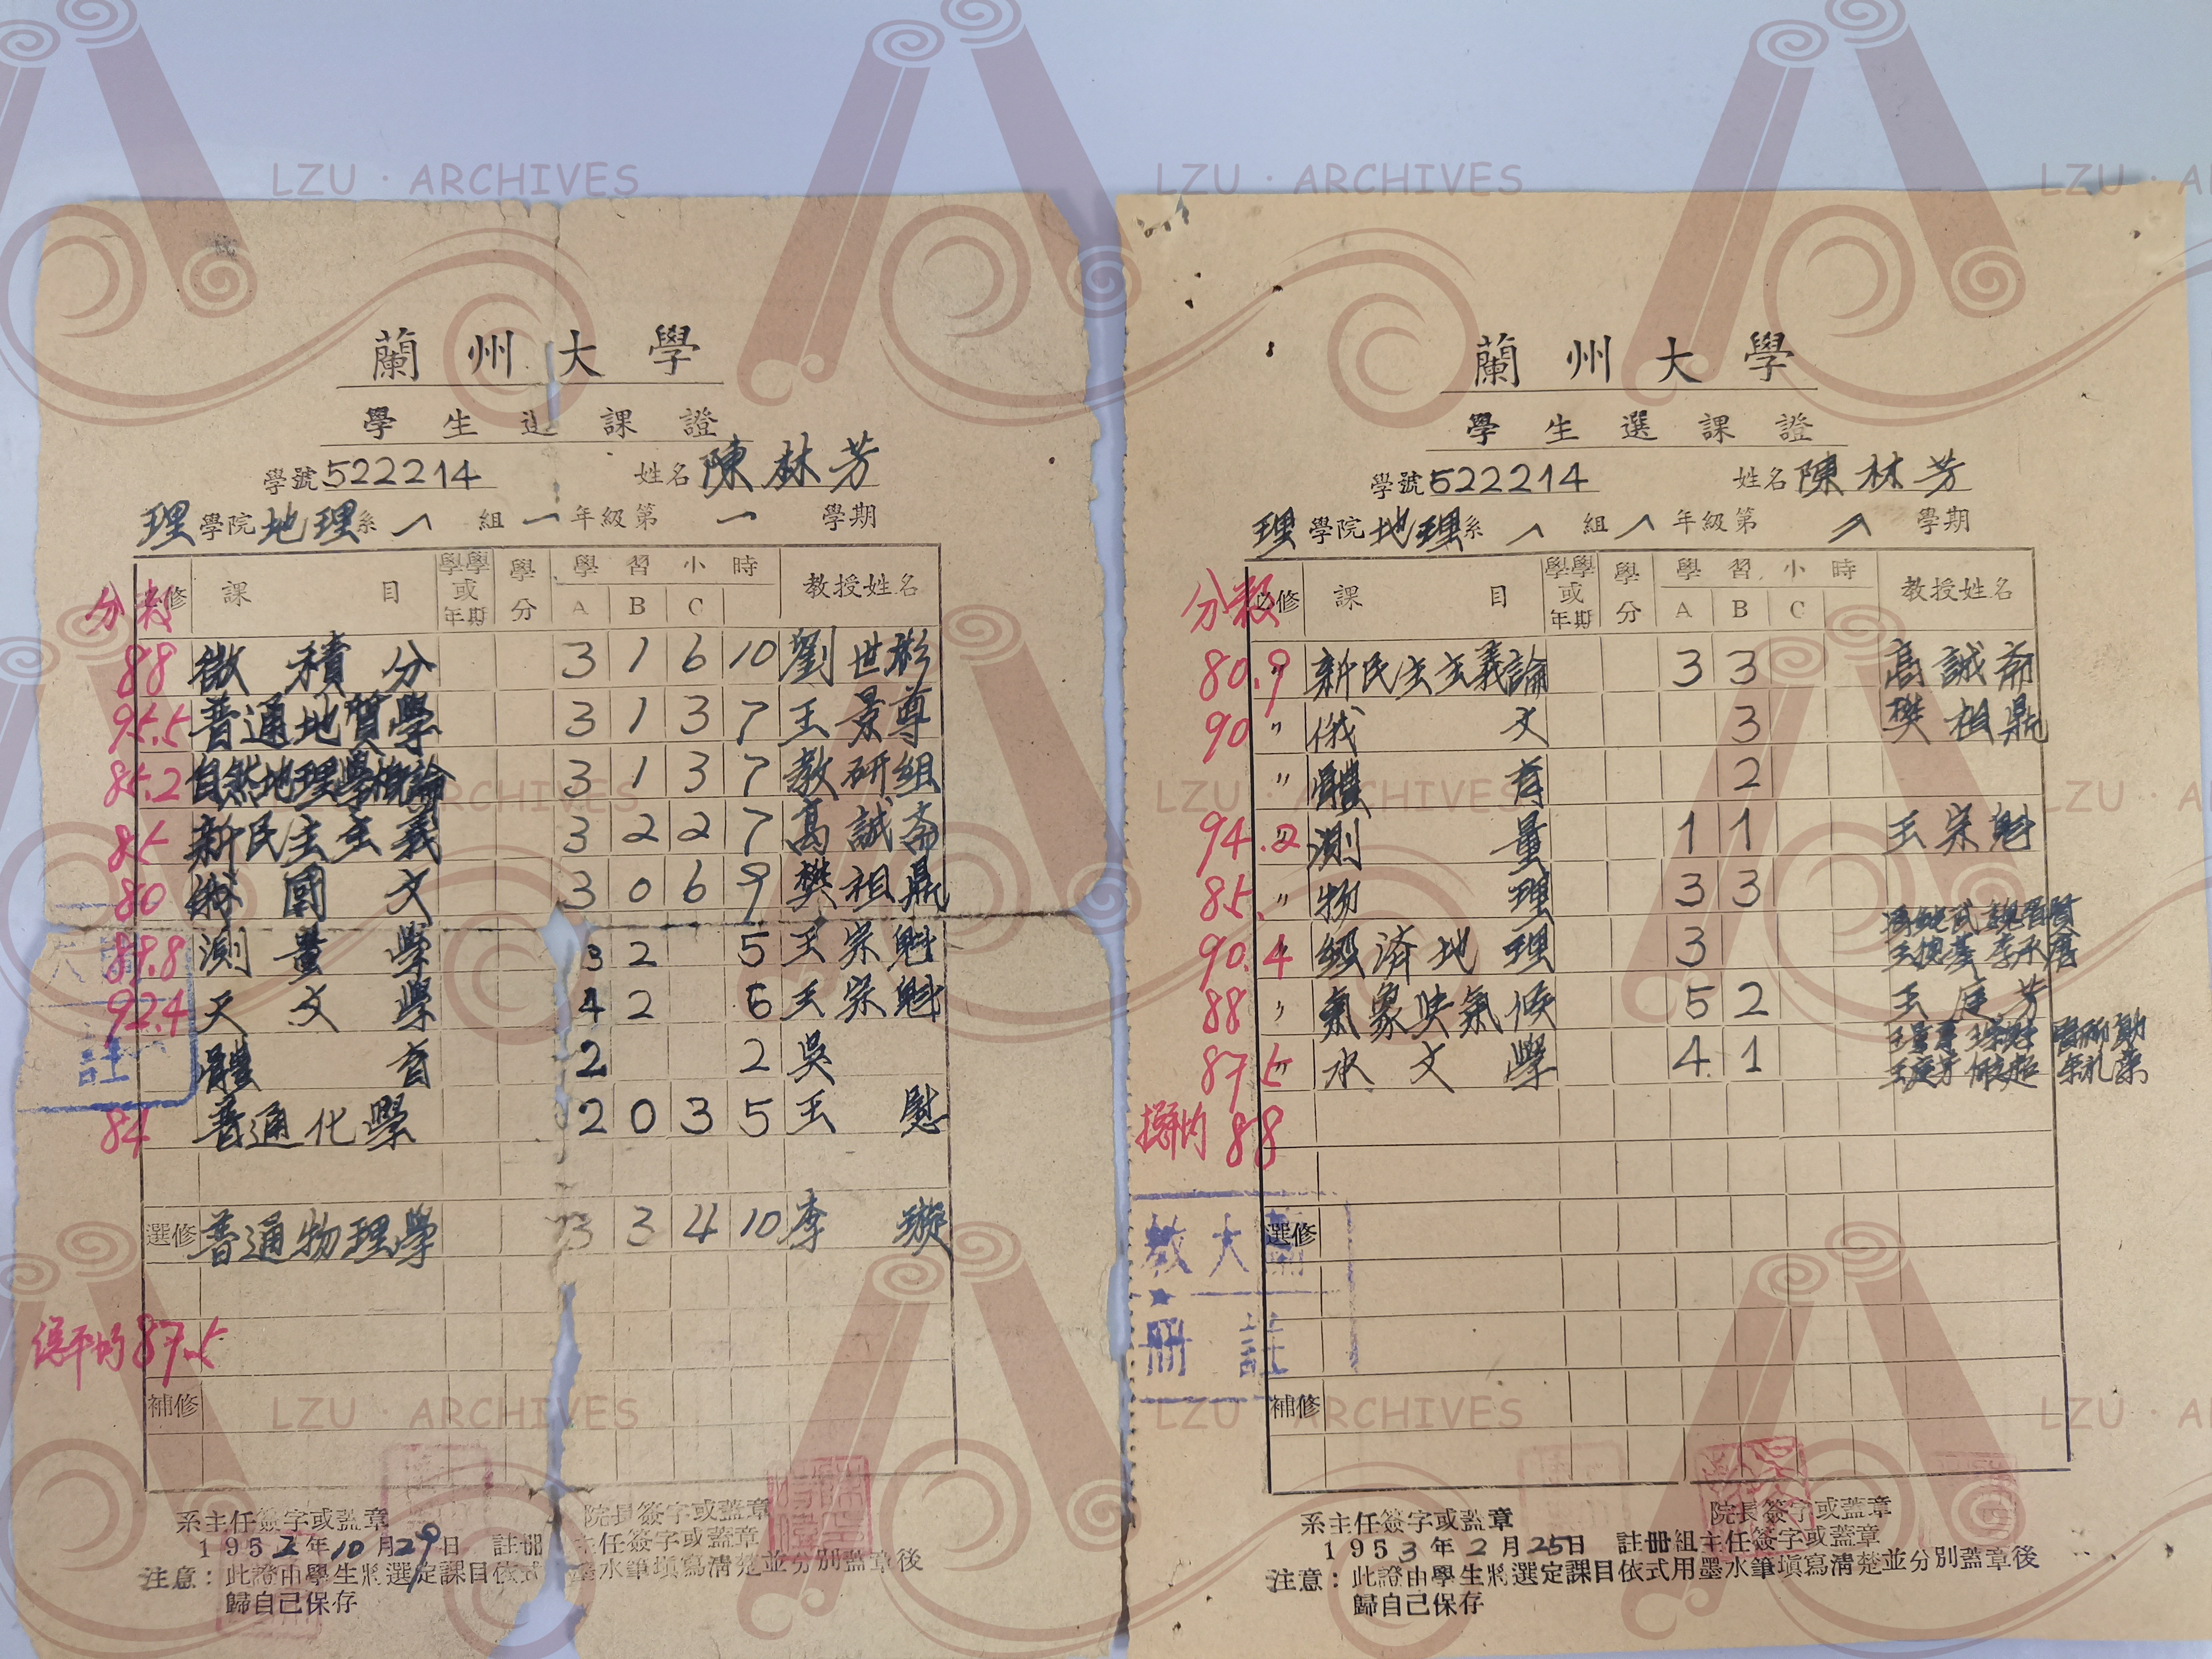 蘭州大學
學生選課證
學號522214 姓名陳林芳
理學院地理系 組一年級第一學期
分數 必修 課目 學學或年期 學分 學習小時 A B C 教授姓名
88 微積分 3 1 6 10 劉世彬
95.5 普通地質學 3 1 3 7 王景尊
85.2 自然地理學概論 3 1 3 7 教研組
85 新民主主義 3 2 2 7 高誠斋
80 俄國文 3 0 6 9 樊祖鼎
89.8 測量學 3 2 5 王宗魁
92.4 天文學 4 2 6 王宗魁
體育 2 2 吳
84 普通化學 2 0 3 5 王慰
選修 普通物理學 3 3 4 10 李璇
總平均 87.5
補修
系主任簽字或蓋章 院長簽字或蓋章
1952年10月29日 註冊 主任簽字或蓋章
注意：此證由學生將選定課目依式 墨水筆塡寫清楚並分別蓋章後
歸自己保存
蘭州大學
學生選課證
學號522214 姓名陳林芳
理學院地理系 組 年級第 學期
分數 必修 課目 學學或年期 學分 學習小時 A B C 教授姓名
80.9 〃 新民主主義論 3 3 高誠斋
90 〃 俄文 3 樊祖鼎
〃 體育 2
94.2 〃 測量 1 1 王宗魁
85. 〃 物理 3 3
90.4 〃 經済地理 3
88 〃 氣象與氣候 5 2 王庭芳
87.5 〃 水文學 4 1
總平均 88
教大蘭
選修
冊註
補修
系主任簽字或蓋章 院長簽字或蓋章
1953年2月25日 註冊組主任簽字或蓋章
注意：此證由學生將選定課目依式用墨水筆塡寫清楚並分別蓋章後
歸自己保存
LZU · ARCHIVES